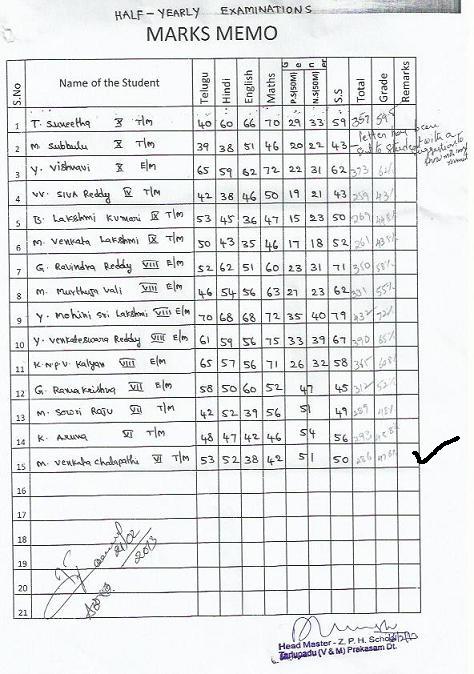 HALF-YEARLY EXAMINATIONS
MARKS MEMO
S.No Name of the Student Telugu Hindi English Maths P.S(50M) N.S(50M) S.S Total Grade Remarks
1 T. Suneetha X T/M 40 60 66 70 29 33 59 357 59%
2 M Subbulu X T/M 39 38 51 46 20 22 43
letter has been sent to student with a suggestion to
3 Y. Vishnavi X E/M 65 59 62 72 22 31 62 373 62%
4 VV. SIVA Reddy IX T/M 42 38 46 50 19 21 43 259 43%
5 B. Lakshmi Kumari IX T/M 53 45 36 47 15 23 50 269 44.8%
6 M. Venkata Lakshmi IX T/M 50 43 35 46 17 18 52 261 43.5%
7 G. Ravindra Reddy VIII E/M 52 62 51 60 23 31 71 350 58%
8 M. Murthuja Vali VIII E/M 46 54 56 63 27 23 62 331 55%
9 Y. Mohini Sri Lakshmi VIII E/M 70 68 68 72 35 40 79 432 72%
10 Y. Venkateswara Reddy VIII E/M 61 59 56 75 33 39 67 390 65%
11 K.N.P.V. Kalyan VIII E/M 65 57 56 71 26 32 58 365 60.8%
12 G. Ramakrishna VII E/M 58 50 60 52 47 45 312 52%
13 M. Sowri Raju VII T/M 42 52 39 56 51 49 289 48%
14 K. Aruna VI T/M 48 47 42 46 54 56 293 48.8%
15 M. Venkata Chalapathi VI T/M 53 52 38 42 51 50 286 47.6%
16
17
18
19
20
21
21/02
2013
Head Master - Z. P. H. School
Tarlupadu (V & M) Prakasam Dt.